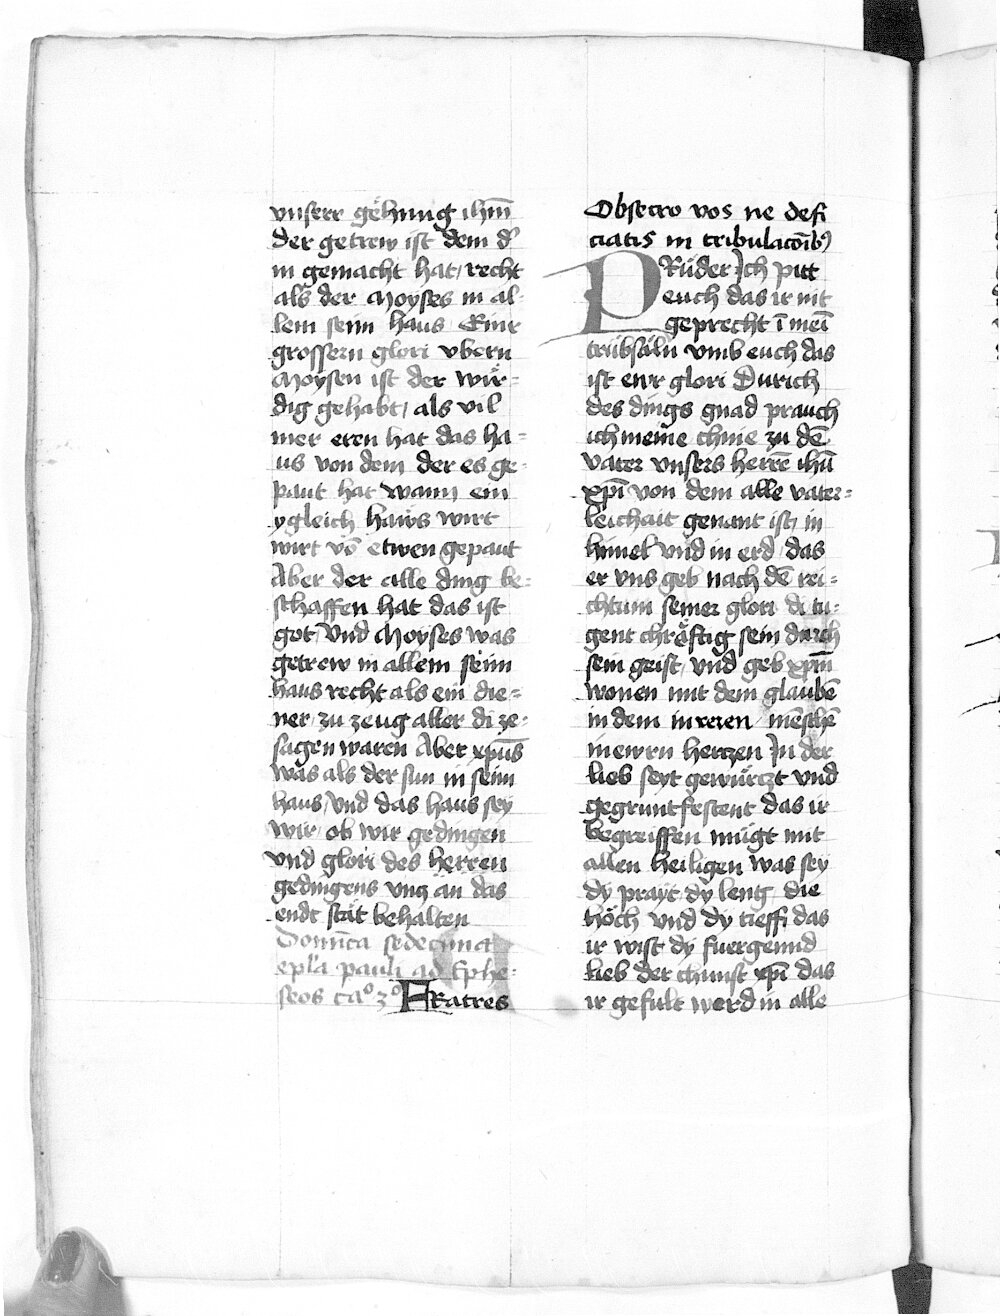 vnserr gehnug ihm̄
der getrew ist dem d'
in gemacht hat / recht
als der Moyses in al-
lem seim haus Einr
grossern glori vbern
Moysen ist der wir-
dig gehabt / als vil
mer eren hat das ha-
us von dem der es ge-
paut hat wann ein
ygleich haws wirt
wirt vō etwen gepaut
Aber der alle ding be-
schaffen hat das ist
got Vnd Moyses was
getrew in allem seim
haus recht als ein die-
ner zu zeug aller di ze-
sagen waren Aber xpūs
was als der sun in seim
haus / Vnd das haus sey
wir / ob wir gedingen
vnd glori des herren
gedingens vnq an das
endt stät behalten
Domīca sedecima
epl'a pauli ad Ephe-
seos cao 3o FRatres
Obsecro vos ne defi
ciatis in tribulacōib9
PRüder Ich pitt
euch das ir nit
geprecht ī mei͞
trübsäln vmb euch das
ist ewr glori Durich
des dings gnad prauch
ich meine chnie zu dē
vater vnsers herrē ihū
xpī von dem alle vater-
leichait genant ist / in
himel vnd in erd / das
er vns geb nach dē rei-
chtum seiner glori di tu-
gent chräftig sein durch
sein geist / vnd geb xpm̄
wonen mit dem glaubē
in dem inreren mēschē
in ewrn hertzen In der
lieb seyt gewürczt vnd
gegruntfestent das ir
begreiffen mügt mit
allen heiligen was sey
dy prayt dy leng / die
höch vnd dy tieff / das
ir wist dy fuergeund
lieb der chunst xpī das
ir gefult werd in alle